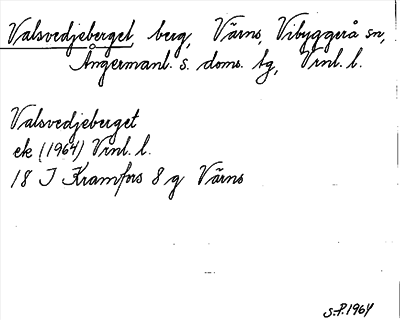 Valsvedjeberget, berg, Värns, Vibyggerå sn,
Ångermanl. s. doms. tg, Vrnl. l.
Valsvedjeberget
ek (1964) Vrnl. l.
18 I Kramfors 8 g Värns
S-P.1964